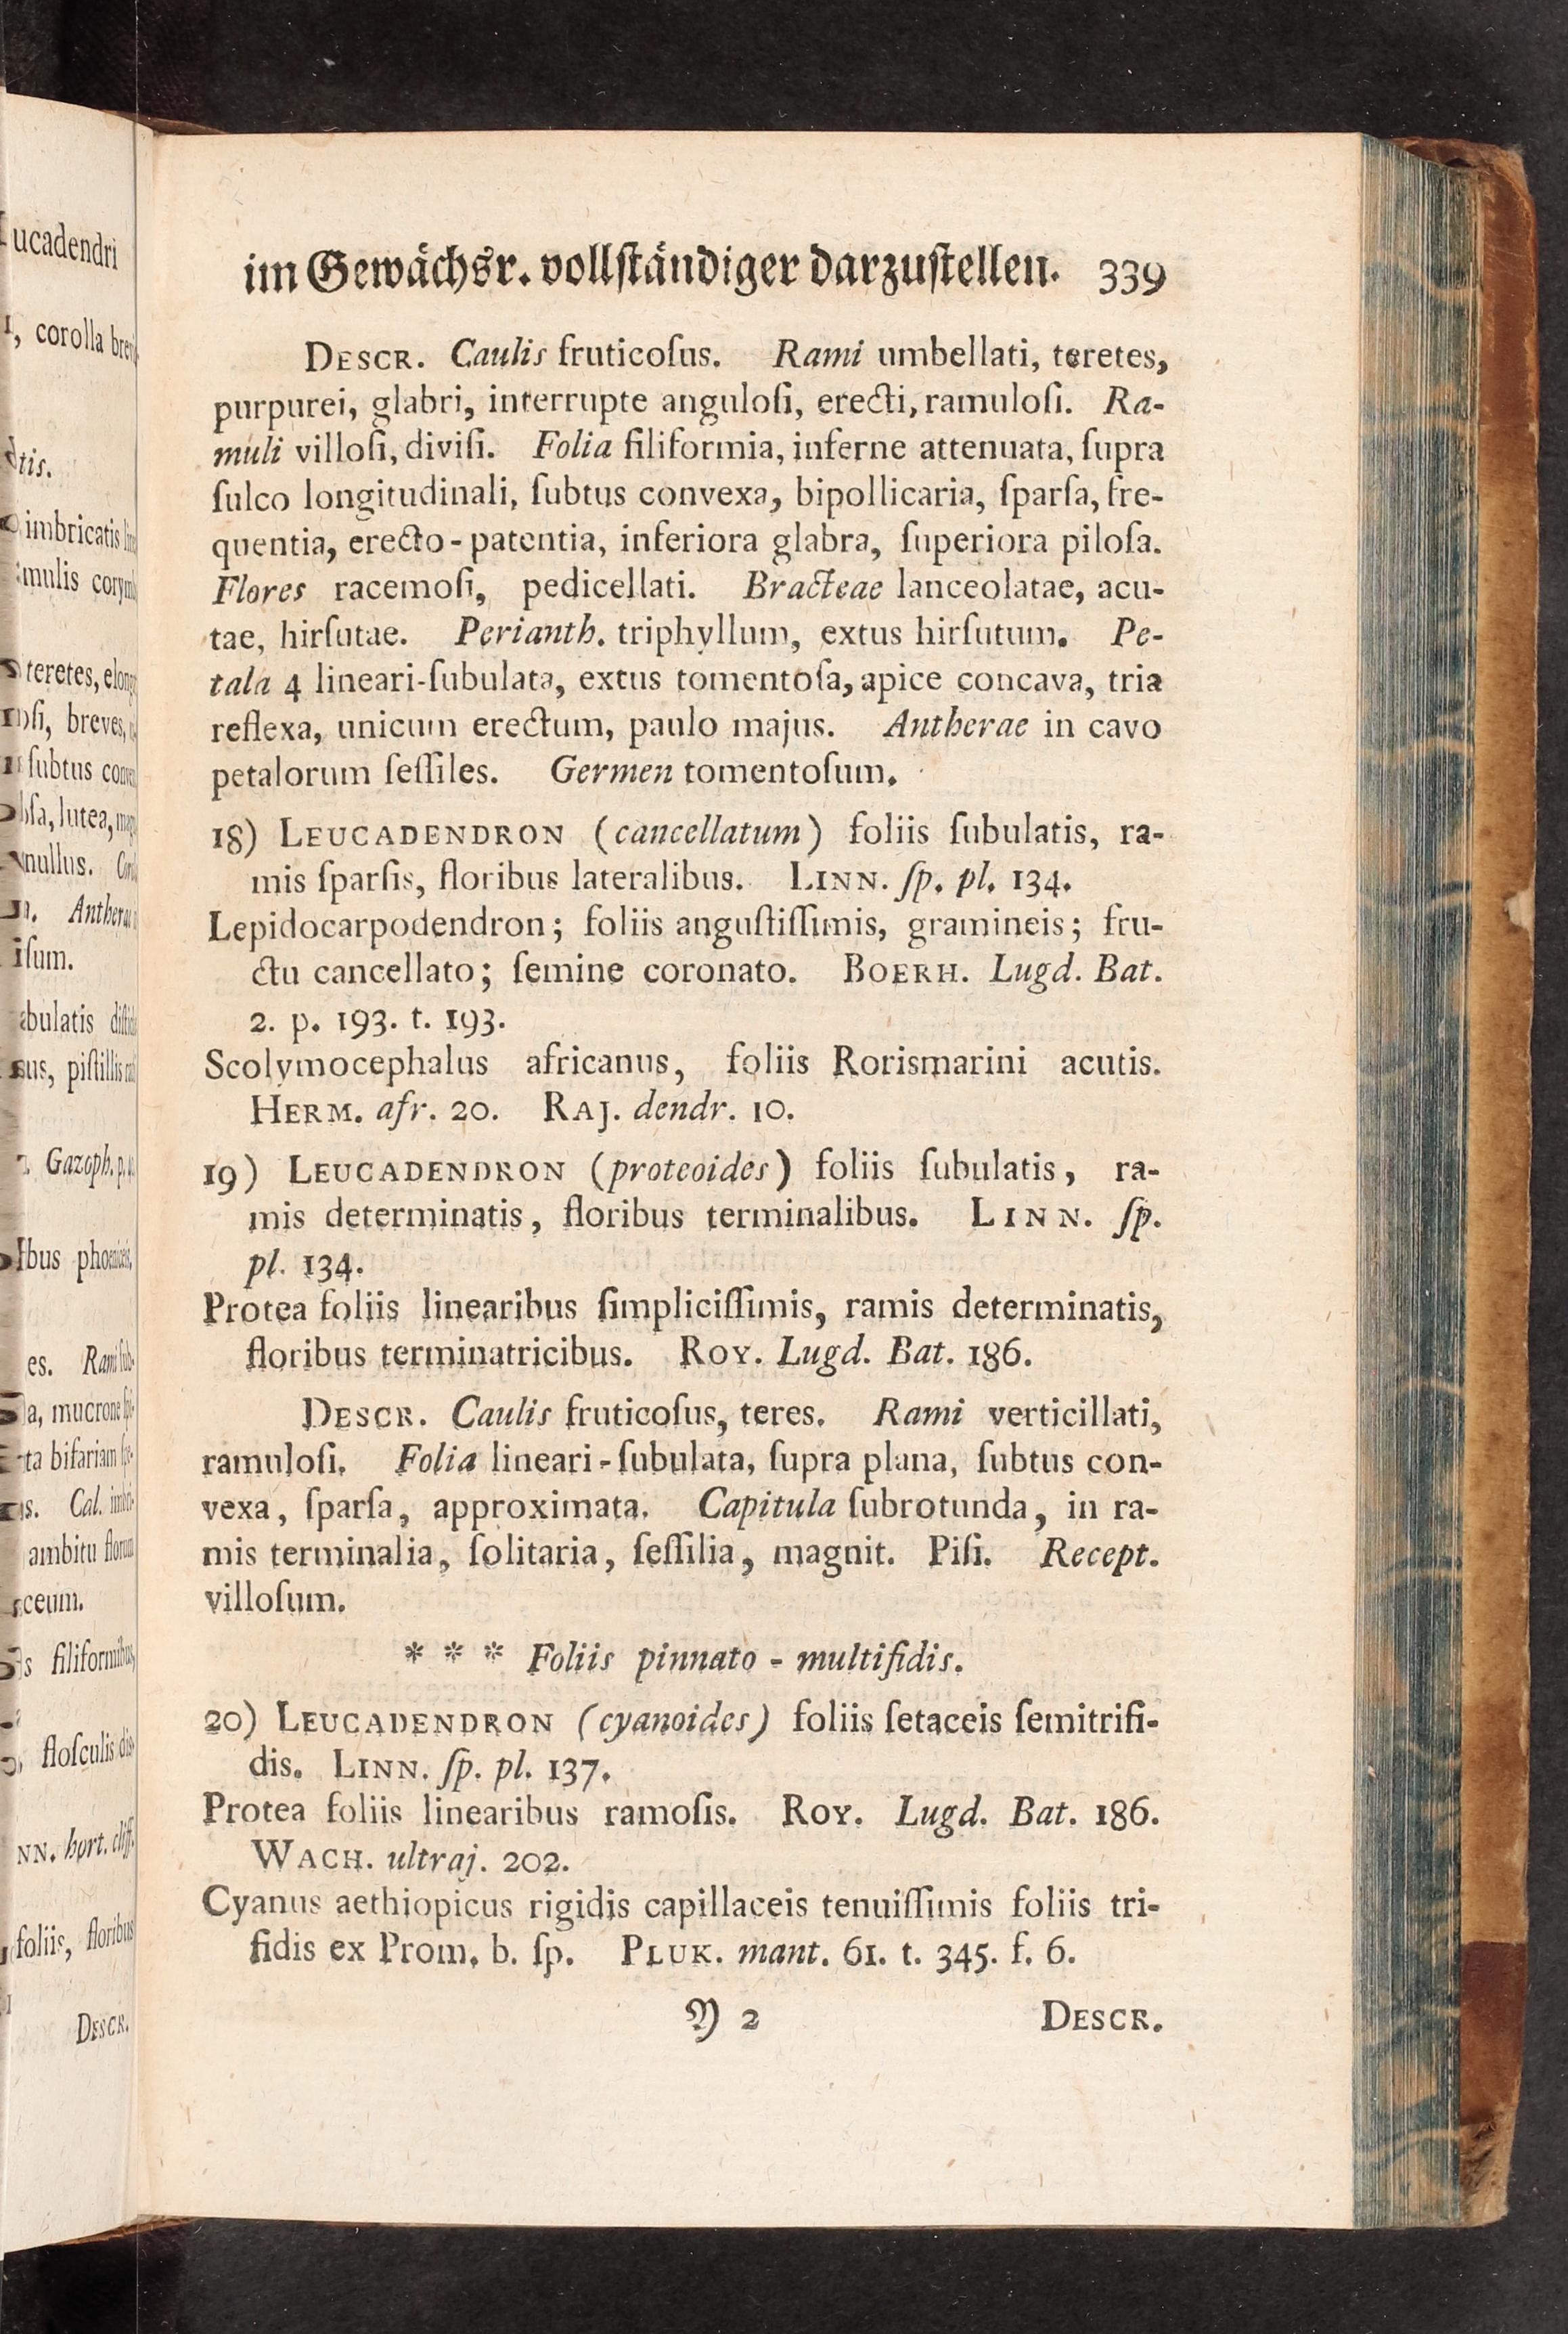 im Gewächsr. vollständiger darzustellen. 339
DESCR. Caulis fruticoſus. Rami umbellati, teretes,
purpurei, glabri, interrupte anguloſi, erecti, ramuloſi. Ra-
muli villoſi, diviſi. Folia filiformia, inferne attenuata, ſupra
ſulco longitudinali, ſubtus convexa, bipollicaria, ſparſa, fre-
quentia, erecto-patentia, inferiora glabra, ſuperiora piloſa.
Flores racemoſi, pedicellati. Bracteae lanceolatae, acu-
tae, hirſutae. Perianth. triphyllum, extus hirſutum. Pe-
tala 4 lineari-ſubulata, extus tomentoſa, apice concava, tria
reflexa, unicum erectum, paulo majus. Antherae in cavo
petalorum ſeſſiles. Germen tomentoſum.
18) LEUCADENDRON (cancellatum) foliis ſubulatis, ra-
mis ſparſis, floribus lateralibus. LINN. ſp. pl. 134.
Lepidocarpodendron; foliis anguſtiſſimis, gramineis; fru-
ctu cancellato; ſemine coronato. BOERH. Lugd. Bat.
2. p. 193. t. 193.
Scolymocephalus africanus, foliis Rorismarini acutis.
HERM. afr. 20. RAJ. dendr. 10.
19) LEUCADENDRON (proteoides) foliis ſubulatis, ra-
mis determinatis, floribus terminalibus. LINN. ſp.
pl. 134.
Protea foliis linearibus ſimpliciſſimis, ramis determinatis,
floribus terminatricibus. ROY. Lugd. Bat. 186.
DESCR. Caulis fruticoſus, teres. Rami verticillati,
ramuloſi. Folia lineari-ſubulata, ſupra plana, ſubtus con-
vexa, ſparſa, approximata. Capitula ſubrotunda, in ra-
mis terminalia, ſolitaria, ſeſſilia, magnit. Piſi. Recept.
villoſum.
* * * Foliis pinnato-multifidis.
20) LEUCADENDRON (cyanoides) foliis ſetaceis ſemitrifi-
dis. LINN. ſp. pl. 137.
Protea foliis linearibus ramoſis. ROY. Lugd. Bat. 186.
WACH. ultraj. 202.
Cyanus aethiopicus rigidis capillaceis tenuiſſimis foliis tri-
fidis ex Prom. b. ſp. PLUK. mant. 61. t. 345. f. 6.
Y 2 DESCR.